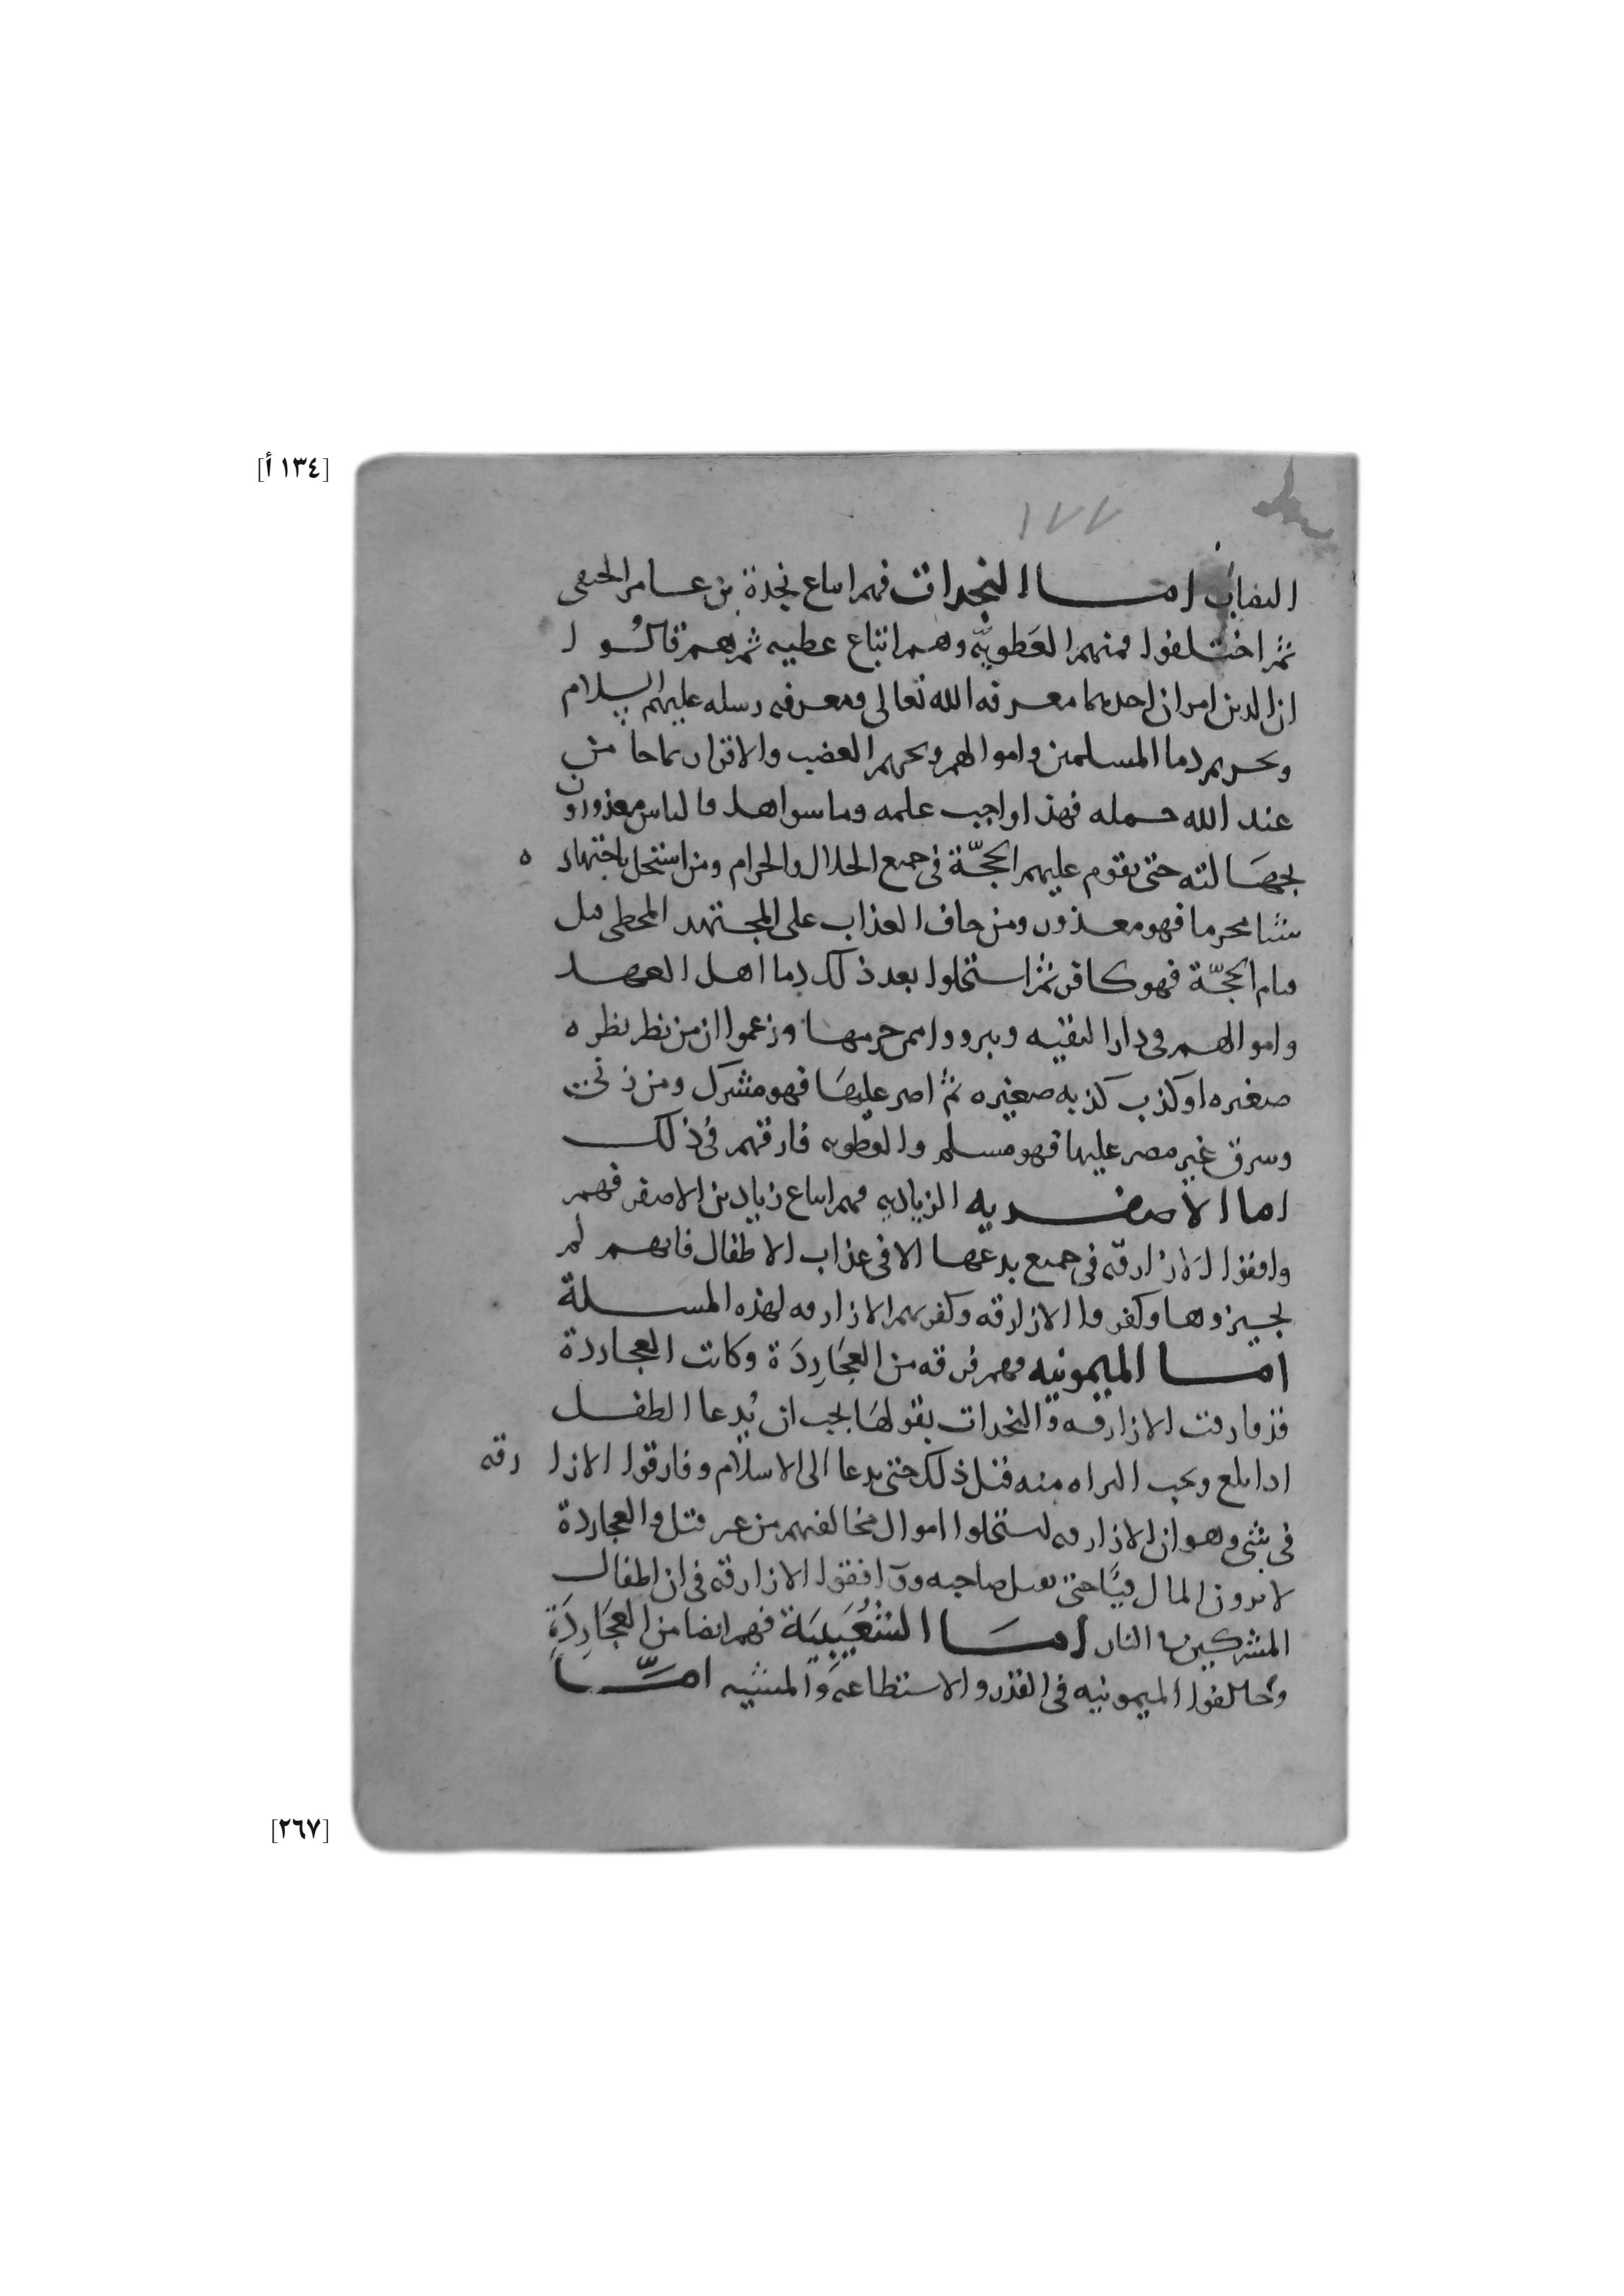 [١٣٤ أ]
١٧٧
امــا النجدات فهم اتباع نجدة بن عامر الحنفى
ثم اختلفوا فمنهم العَطويّه وهم اتباع عطيه ثم هم قالُوا
ان الدين امران احدهما معرفه الله تعالى ومعرفه رسله عليهم السلام
وتحريم دما المسلمين واموالهم وتحريم الغضب والاقرار بماجا من
عند الله جمله فهذا واجب علمه وما سواهما فالناس معذورون
بجهَالته حتى يقوم عليهم الحجّة فى جميع الحلال والحرام ومن استحل باجتهاد ه
شيئا محرما فهو معذور ومن خاف العذاب على المجتهد المخطى قبل
قيام الحجّة فهو كافر ثم استحلوا بعد ذلك دما اهل العهد
واموالهم فى دار التقيه وبروا ممن حرمها وزعموا ان من نظر نظره
صغيره او كذب كذبه صغيره ثم اصر عليهَا فهو مشرك ومن زنى
وسرق غير مصر عليها فهو مسلم والعطويه فارقهم فى ذلك
اما الاصفريه الزياديه فهم اتباع زياد بن الاصفر فهم
وافقوا الازارقه فى جميع بدعها الا فى عذاب الاطفال فانهم لم
يجيزوها وكفروا الازارقه وكفرتهم الازارقه لهذه المسلة
امــا الميمونيه فهم فرقه من العجَاردَة وكانت العجاردة
قد فارقت الازارقه والنجدات بقولهَا يجب ان يُدعا الطفل
اذا بلغ ويجب البراه منه قبل ذلك حتى يدعا الى الاسلام وفارقوا الازا رقه
فى شى وهو ان الازارقه استحلوا اموال مخالفيهم من غير قتل والعجاردة
لا يرون المال فيًا حتى يقتل صاحبه ووافقوا الازارقه فى ان اطفال
المشركين فى النار امَــا الشُعَيبيَة فهم ايضا من العجَاردَةِ
وخالفوا الميمونيه فى القدر والاستطاعه والمشيه امّــا
[٢٦٧]